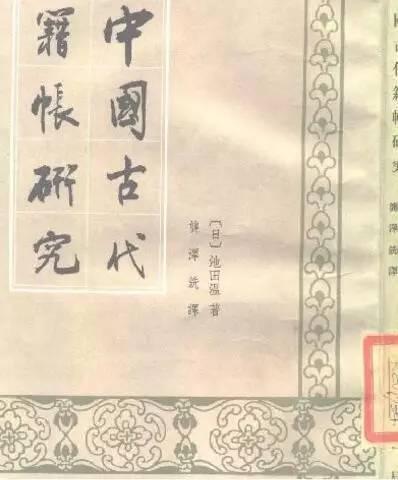 中國古代
籍帳研究
〔日〕池田溫著
龔澤銑譯
國古代籍帳研究
龔澤銑譯